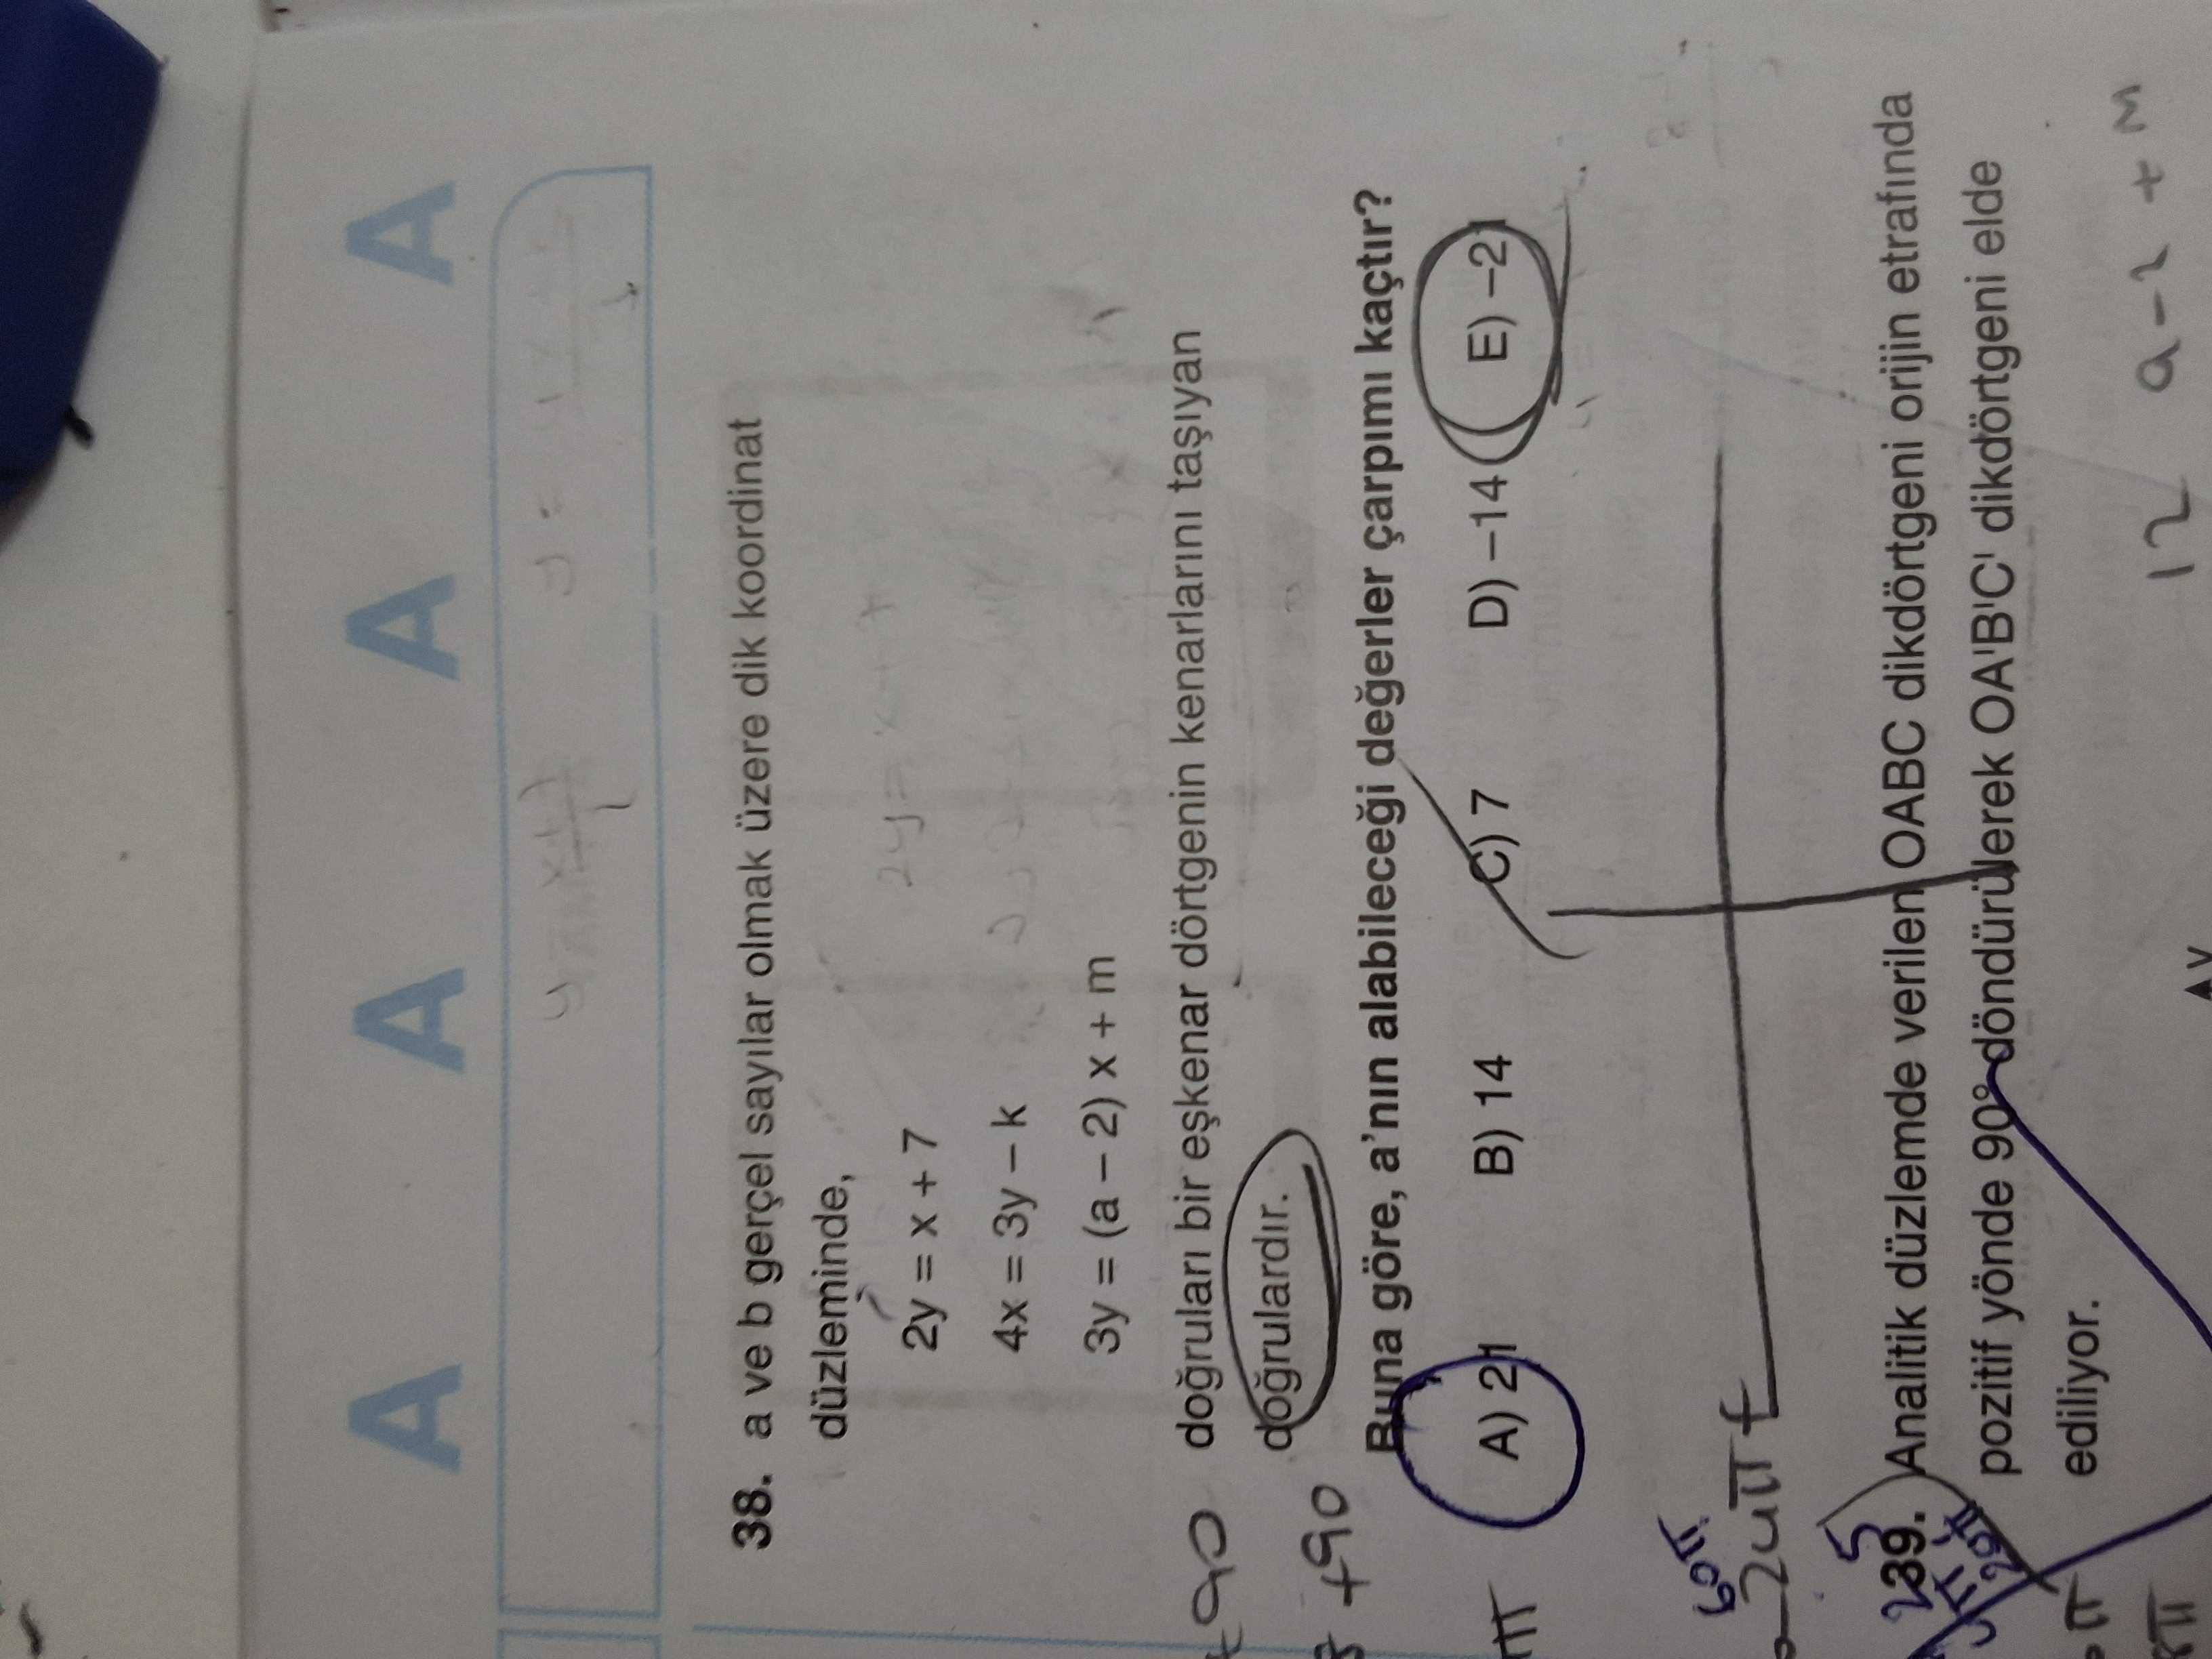 A A A A
38. a ve b gerçel sayılar olmak üzere dik koordinat
düzleminde,
2y = x + 7
4x = 3y – k
3y = (a – 2) x + m
doğruları bir eşkenar dörtgenin kenarlarını taşıyan
doğrulardır.
+90
+90
Buna göre, a'nın alabileceği değerler çarpımı kaçtır?
A) 21 B) 14 C) 7 D) –14 E) –21
39. Analitik düzlemde verilen OABC dikdörtgeni orijin etrafında
pozitif yönde 90° döndürülerek OA'B'C' dikdörtgeni elde
ediliyor.
12 a-2 + m
y